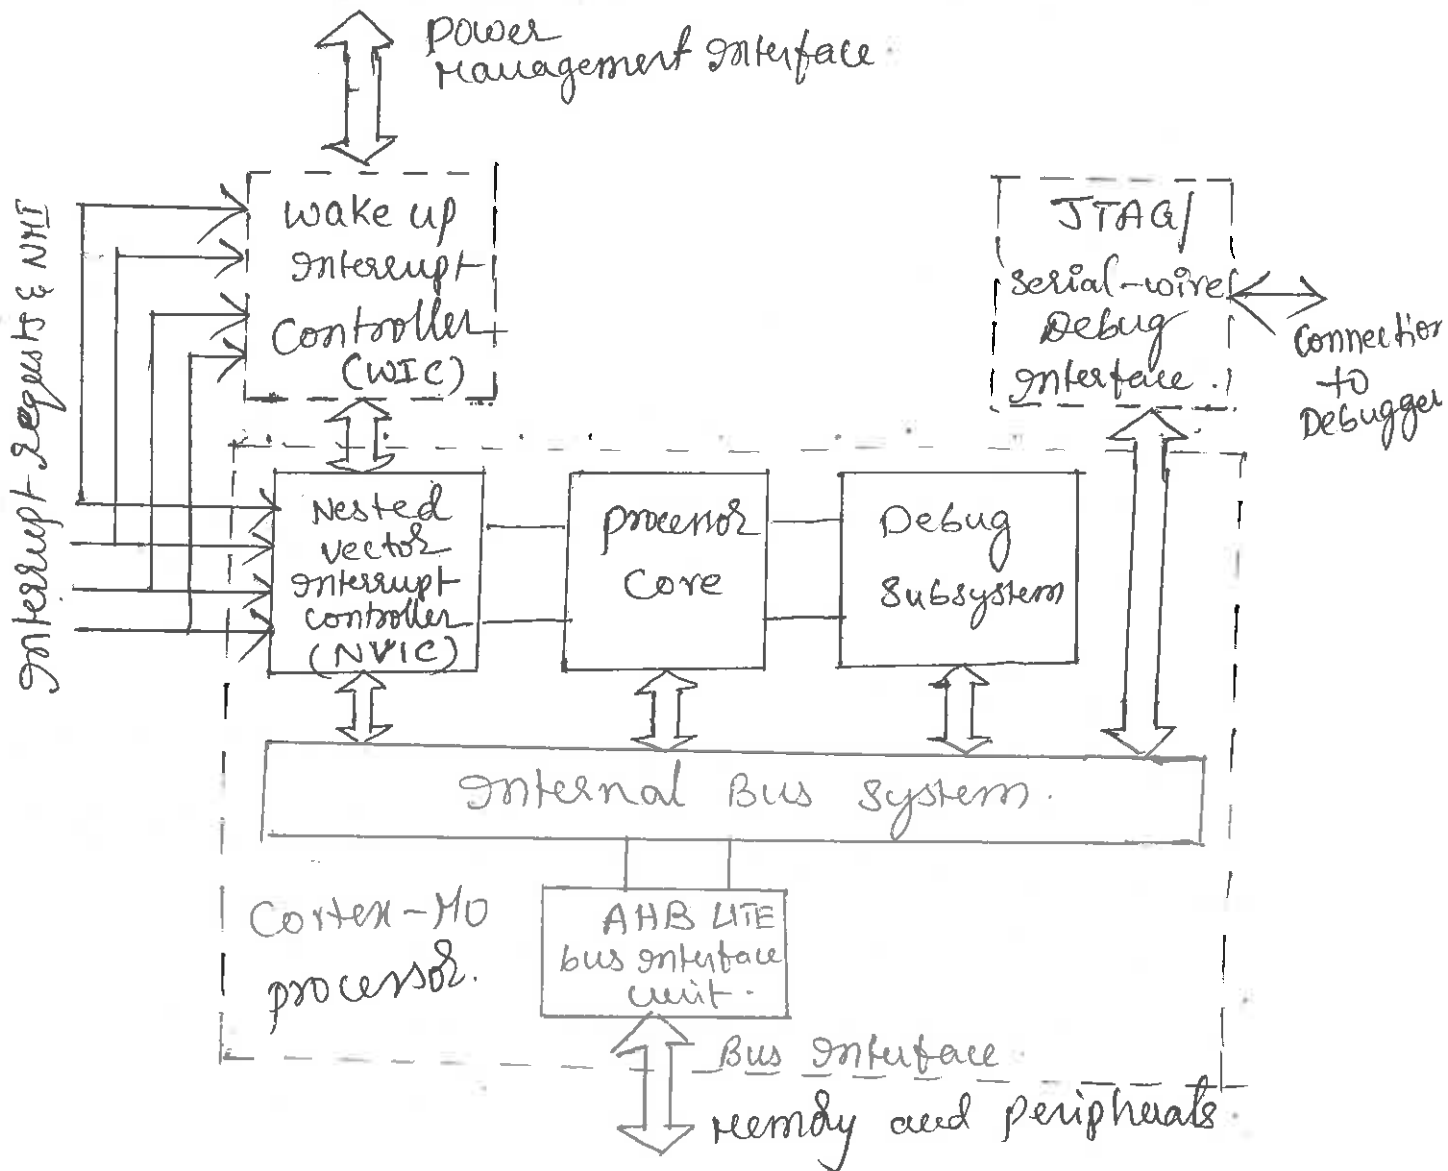 Power
Management Interface
Interrupt requests & NMI
Wake up
Interrupt
Controller
(WIC)
JTAG/
Serial-wire
Debug
Interface.
Connection
to
Debugger
Nested
vector
Interrupt
controller
(NVIC)
processor
core
Debug
Subsystem
Internal Bus System.
Cortex-M0
processor.
AHB LITE
bus Interface
unit.
Bus Interface
Memory and peripherals